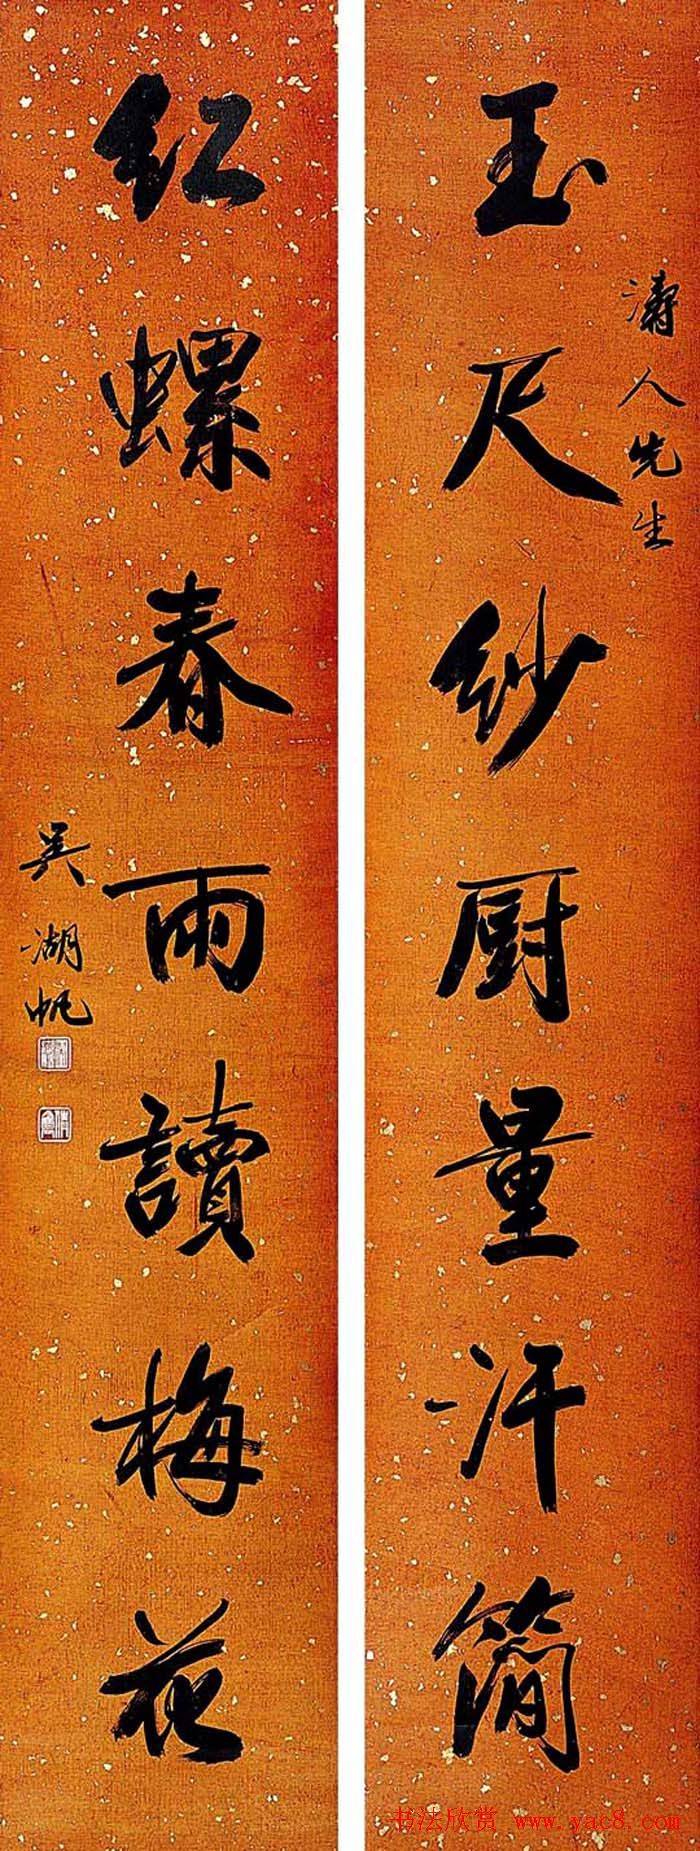 玉尺紗厨量汗簡
濤人先生
红螺春雨讀梅花
吴湖帆
书法欣赏 www.yac8.com